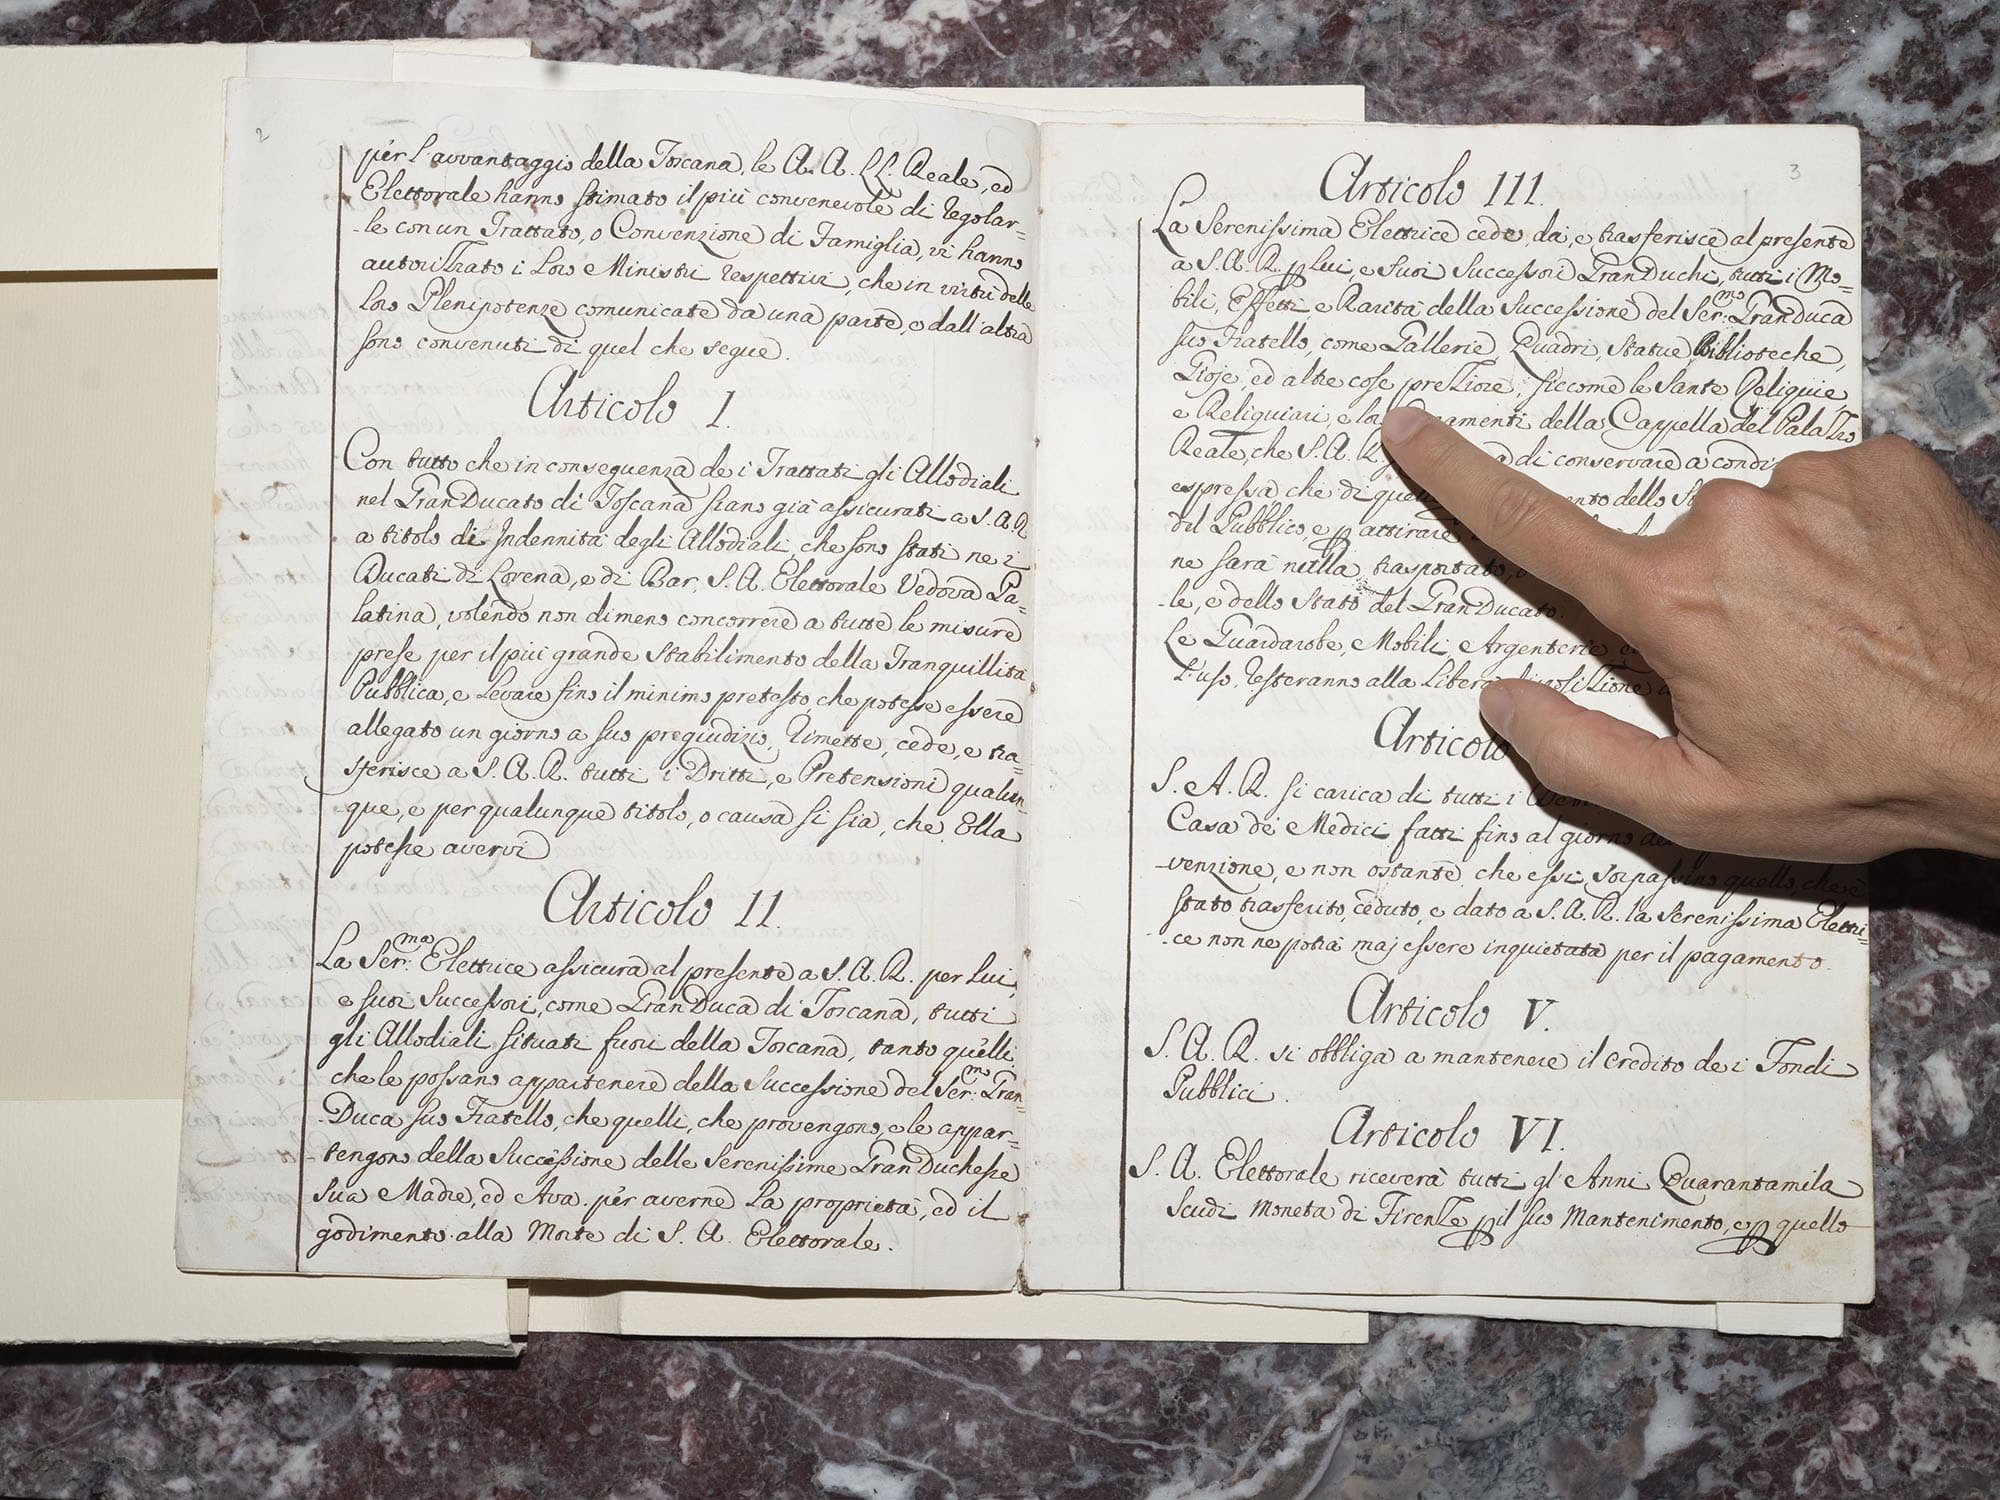 2
per l'avvantaggio della Toscana, le A. A. LL. Reale, ed
Elettorale hanno stimato il più convenevole di regolar=
-le con un Trattato, o Convenzione di Famiglia, vi hanno
autorizzato i Loro Ministri respettivi, che in virtù delle
loro Plenipotenze comunicate da una parte, e dall'altra
sono convenuti di quel che segue.
Articolo I.
Con tutto che in conseguenza dei Trattati gli Allodiali
nel Gran Ducato di Toscana siano già assicurati a S. A. R.
a titolo di Indennità degli Allodiali che sono stati nei
Ducati di Lorena, e di Bar, S. A. Elettorale Vedova Pa=
latina, volendo non dimeno concorrere a tutte le misure
prese per il più grande stabilimento della Tranquillità
Pubblica, e levare fino il minimo pretesto, che potesse essere
allegato un giorno a suo pregiudizio, rimette, cede, e tra=
sferisce a S. A. R. tutti i Dritti, e Pretensioni qualun
-que, e per qualunque titolo, o causa si sia, che Ella
potesse avervi
Articolo II.
La Ser:ma Elettrice assicura al presente a S. A. R. per lui,
e suoi Successori, come Gran Duca di Toscana, tutti
gli Allodiali situati fuori della Toscana, tanto quelli
che le possano appartenere della Successione del Ser:mo Gran=
Duca suo Fratello, che quelli, che provengono, e le appar=
-tengono della Successione delle Serenissime Gran Duchesse
sua Madre, ed Ava per averne la proprietà, ed il
godimento alla Morte di S. A. Elettorale.
3
Articolo III.
La Serenissima Elettrice cede, da, e trasferisce al presente
a S. A. R. p lui, e suoi Successori Gran Duchi, tutti i Mo=
bili, Effetti e Rarità della Successione del Ser:mo Gran Duca
suo Fratello, come Gallerie, Quadri, Statue, Biblioteche,
Gioje, ed altre cose preziose, siccome le Sante Reliquie,
e Reliquiari, e lor della Cappella del Palazzo
Reale, che S. A. R. di conservare a
espressa che di dello
del Pubblico, e p attirare
ne sarà nulla trasportato,
-le, e dello Stato del Gran Ducato.
Le Guardarobe, Mobili, e Argenterie
L'uso, resteranno alla libera disposizione
Articolo
S. A. R. si carica di tutti i
Casa dei Medici fatti fino al giorno
-venzione, e non ostante che essi sorpassino quello, che è
stato trasferito, ceduto, e dato a S. A. R. la Serenissima Elettri=
-ce non ne potrà maj essere inquietata per il pagamento.
Articolo V.
S. A. R. si obbliga a mantenere il credito dei Fondi
Pubblici.
Articolo VI.
S. A. Elettorale riceverà tutti gl'Anni Quarantamila
Scudi Moneta di Firenze p il suo Mantenimento, e p quello